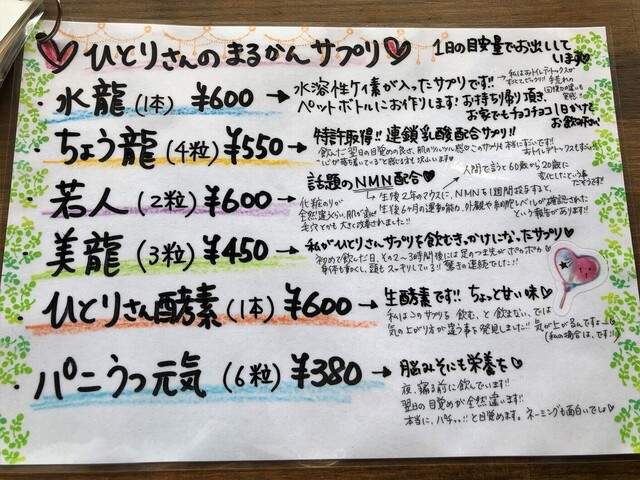 ♥ひとりさんのまるかんサプリ♥
1日の目安量でお出ししています♡
・水龍(1本) ¥600→
水溶性ケイ素が入ったサプリです!!
ペットボトルにお作りします!お持ち帰り頂き、
お家でもチョコチョコ1日かけてお飲み下さい
・ちょう龍(4粒) ¥550→
特許取得!!連鎖乳酸配合サプリ!!
飲んだ翌日の目覚めの良さ、肌のツルツル感
・若人(2粒) ¥600→
話題のNMN配合♡
人間で言うと60歳から20歳に
変化したという事だそうです!!
生後22ヶ月のマウスに、NMNを1週間投与すると、
生後6ヶ月の運動能力、外観や細胞レベルが確認された
という報告があります!!
化粧のりが
全然違うくらい、肌が変わり
毛穴とかも大きく改善されました!!
・美龍(3粒) ¥450→
私がひとりさんサプリを飲むきっかけになったサプリ♡
初めて飲んだ日、その2〜3時間後には足のつま先がポカポカ
身体も動くし、頭もスッキリしているし驚きの連続でした!!
・ひとりさん酵素(1本) ¥600→
生酵素です!!ちょっと甘い味♡
私はこのサプリを飲む、と飲まない、では
気の上がり方が違う事を発見しました!!気が上がるんですよー♡
(私の場合は、です!)
・パニうつ元気(6粒) ¥380→
脳みそにも栄養を♡
夜、寝る前に飲んでいます!!
翌日の目覚めが全然違います!!
本当に、パチッ!!と目覚めます。ネーミングも面白いでしょ♡